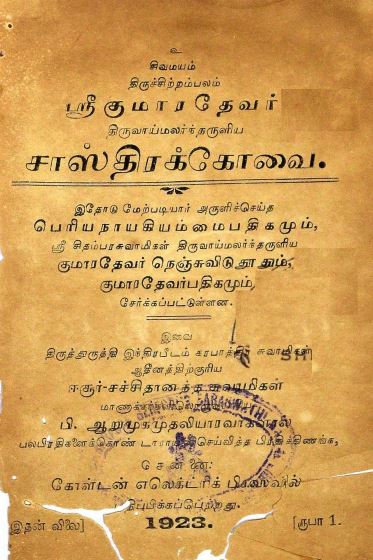 உ
சிவமயம்
திருச்சிற்றம்பலம்
ஸ்ரீகுமாரதேவர்
திருவாய்மலர்ந்தருளிய
சாஸ்திரக்கோவை.
இதோடு மேற்படியார் அருளிச்செய்த
பெரியநாயகியம்மைபதிகமும்,
ஸ்ரீ சிதம்பரசுவாமிகள் திருவாய்மலர்ந்தருளிய
குமாரதேவர் நெஞ்சுவிடுதூதும்,
குமாரதேவர்பதிகமும்,
சேர்க்கப்பட்டுள்ளன.
இவை
திருத்துருத்தி இந்திரபீடம் கரபாத்திர சுவாமிகள்
ஆதீனத்திற்குரிய
ஈசூர்-சச்சிதானந்த சுவாமிகள்
பி. ஆறுமுகமுதலியாரவர்களால்
பலபிரதிகளைக்கொண்
சென்னை:
கோல்டன் எலெக்ட்ரிக் பிரஸில்
பதிப்பிக்கப்பெற்றது.
இதன் விலை] 1923. [ரூபா 1.
SARASWATHI